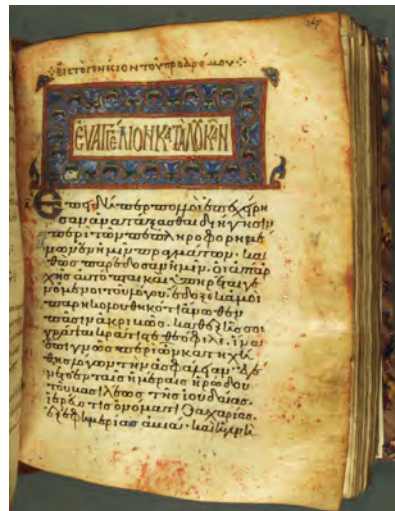 εἰς τὸ τοῦ προδρόμου
ΕΥΑΓΓΕΛΙΟΝ ΚΑΤΑ ΛΟΥΚΑΝ
Ἐπειδήπερ πολλοὶ ἐπεχείρη
σαν ἀνατάξασθαι διήγησιν
περὶ τῶν πεπληροφορημέ
νων ἐν ἡμῖν πραγμάτων. κα
θὼς παρέδοσαν ἡμῖν. οἱ ἀπαρ
χῆς αὐτόπται καὶ ὑπηρέται γε
νόμενοι τοῦ λόγου. ἔδοξε κἀμοὶ
παρηκολουθηκότι ἄνωθεν
πᾶσιν ἀκριβῶς. καθεξῆς σοι
γράψαι κράτιστε θεόφιλε. ἵνα
ἐπιγνῶς περὶ ὧν κατηχή
θης λόγων τὴν ἀσφάλειαν. Ἐγέ
νετο ἐν ταῖς ἡμέραις ἡρώδου
τοῦ βασιλέως τῆς ἰουδαίας.
ἱερεύς τις ὀνόματι ζαχαρίας.
ἐξ ἐφημερίας ἀβιά. καὶ ἡ γυνὴ